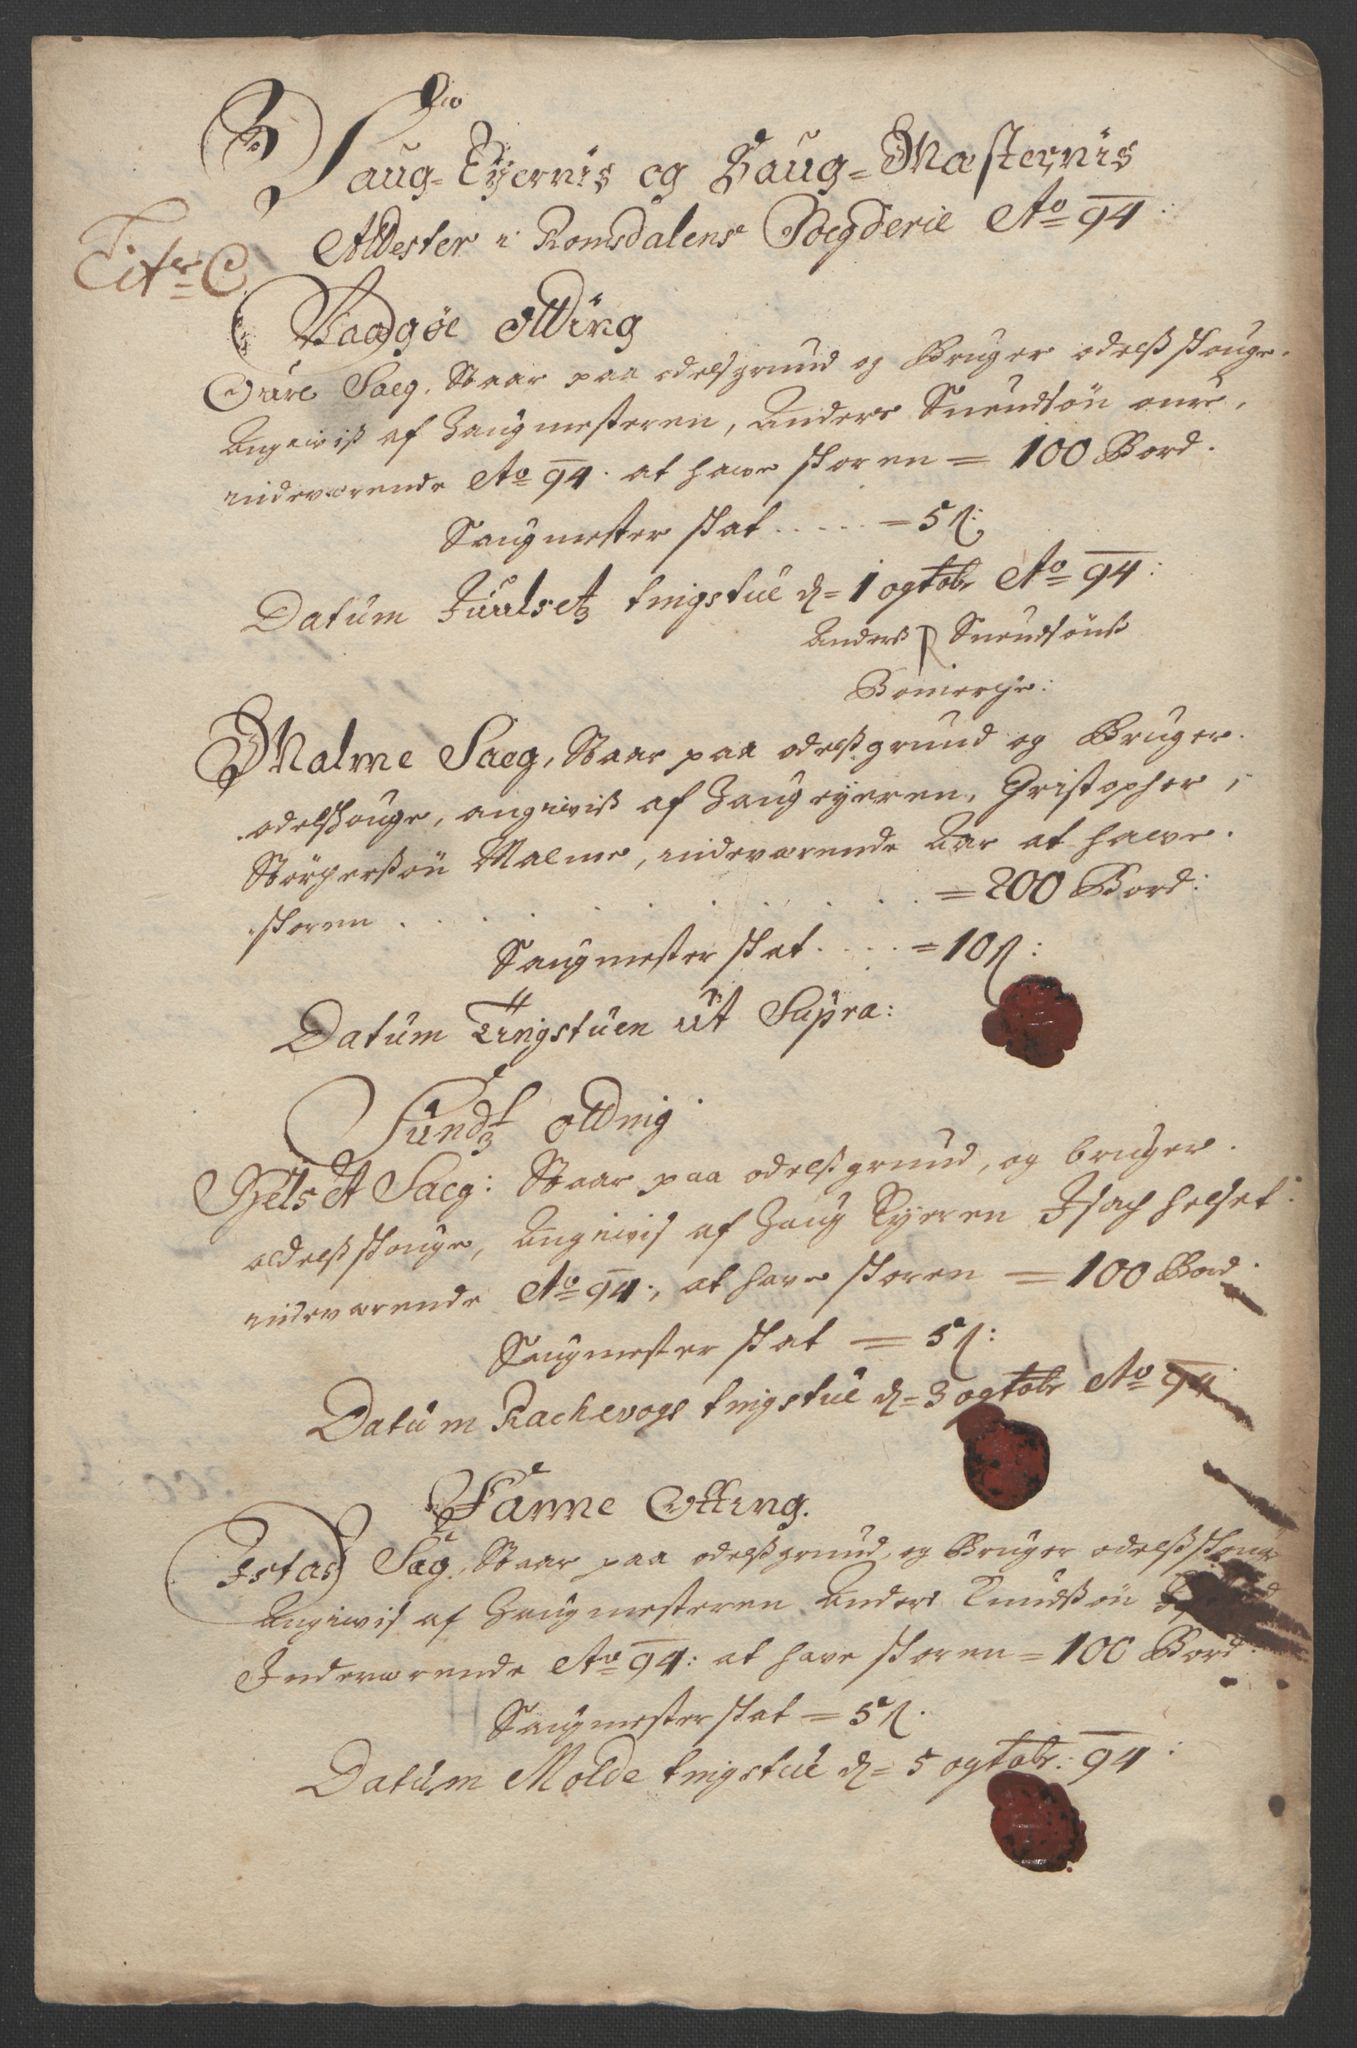 Saug-Eyernis og Saug-Mæsternis
Attester i Romsdalens Fogderie Ao 94:
Litr C
Waagøe Otting
Oure Saeg, Staar paa odelsgrund og Bruger odelsskouge.
Angiwis af Saugmesteren, Anders Suendsøn oure,
indeværende Ao 94. at hawe skoren = 100 Bord.
Saugmester skat ..... = 5
Datum Juulset tingstue d= 1 ogtobr Ao 94:
Anders Suendsøns
Bomerche:
Malme Saeg, Staar paa odelsgrund og Bruger
odelskouge, angiwis af Saugeyeren, Cristopher
Størchersøn Malme, indeværende Aar at hawe
skoren . . . . . . . . = 200 Bord:
Saugmester skat .... = 10
Datum Tingstuen ut Supra:
Sundz Otting
Helset Saeg: Staar paa odelsgrund, og bruger
oddelsskouge, Angiwis af Saug Eyeren Isach helset
indeværende Ao 94:, at have skoren = 100 Bord.
Saugmester skat = 5
Datum Rachevogs tingstue d= 3 ogtobr Ao 94
Fanne Otting.
Istad Sag, Staar paa odelsgrund, og Bruger odelsskoug
Angiwis af Saugmesteren Anders Knudsøn
Indeværende Ao 94: at have skoren = 100 Bord
Saugmester skat = 5
Datum Molde tingstue d= 5 ogtobr: 94: